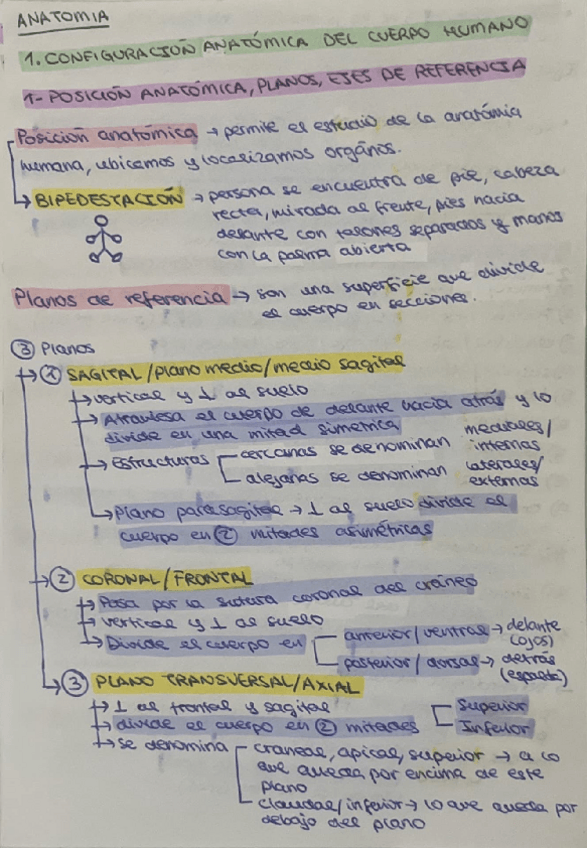 ANATOMIA
1. CONFIGURACIÓN ANATÓMICA DEL CUERPO HUMANO
1- POSICIÓN ANATÓMICA, PLANOS, EJES DE REFERENCIA
Posición anatómica → permite el estudio de la anatómia
humana, ubicamos y localizamos orgános.
↳ BIPEDESTACIÓN → persona se encuentra de pie, cabeza
recta, mirada al frente, pies hacia
delante con talones separados y manos
con la palma abierta
Planos de referencia → son una superficie que divide
el cuerpo en secciones.
③ Planos
→ ① SAGITAL/plano medio/medio sagital
→ vertical y ⊥ al suelo
→ Atraviesa el cuerpo de delante hacia atrás y lo
divide en una mitad simetrica
→ Estructuras cercanas se denominan mediales/
internas
alejadas se denominan laterales/
externas
→ Plano parasagital → ⊥ al suelo divide el
cuerpo en ② mitades asimétricas
→ ② CORONAL/FRONTAL
→ Pasa por la sutura coronal del cráneo
→ vertical y ⊥ al suelo
→ Divide el cuerpo en anterior/ventral → delante
(ojos)
posterior/dorsal → detrás
(espalda)
→ ③ PLANO TRANSVERSAL/AXIAL
→ ⊥ al frontal y sagital
→ divide el cuerpo en ② mitades Superior
Inferior
→ se denomina craneal, apical, superior → a lo
que queda por encima de este
plano
claudal/inferior → lo que queda por
debajo del plano